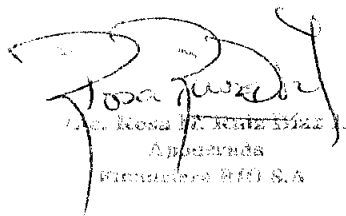 Rosa
Lic. Rosa M. Ruiz Díaz A.
Apoderada
Financiera RIO S.A